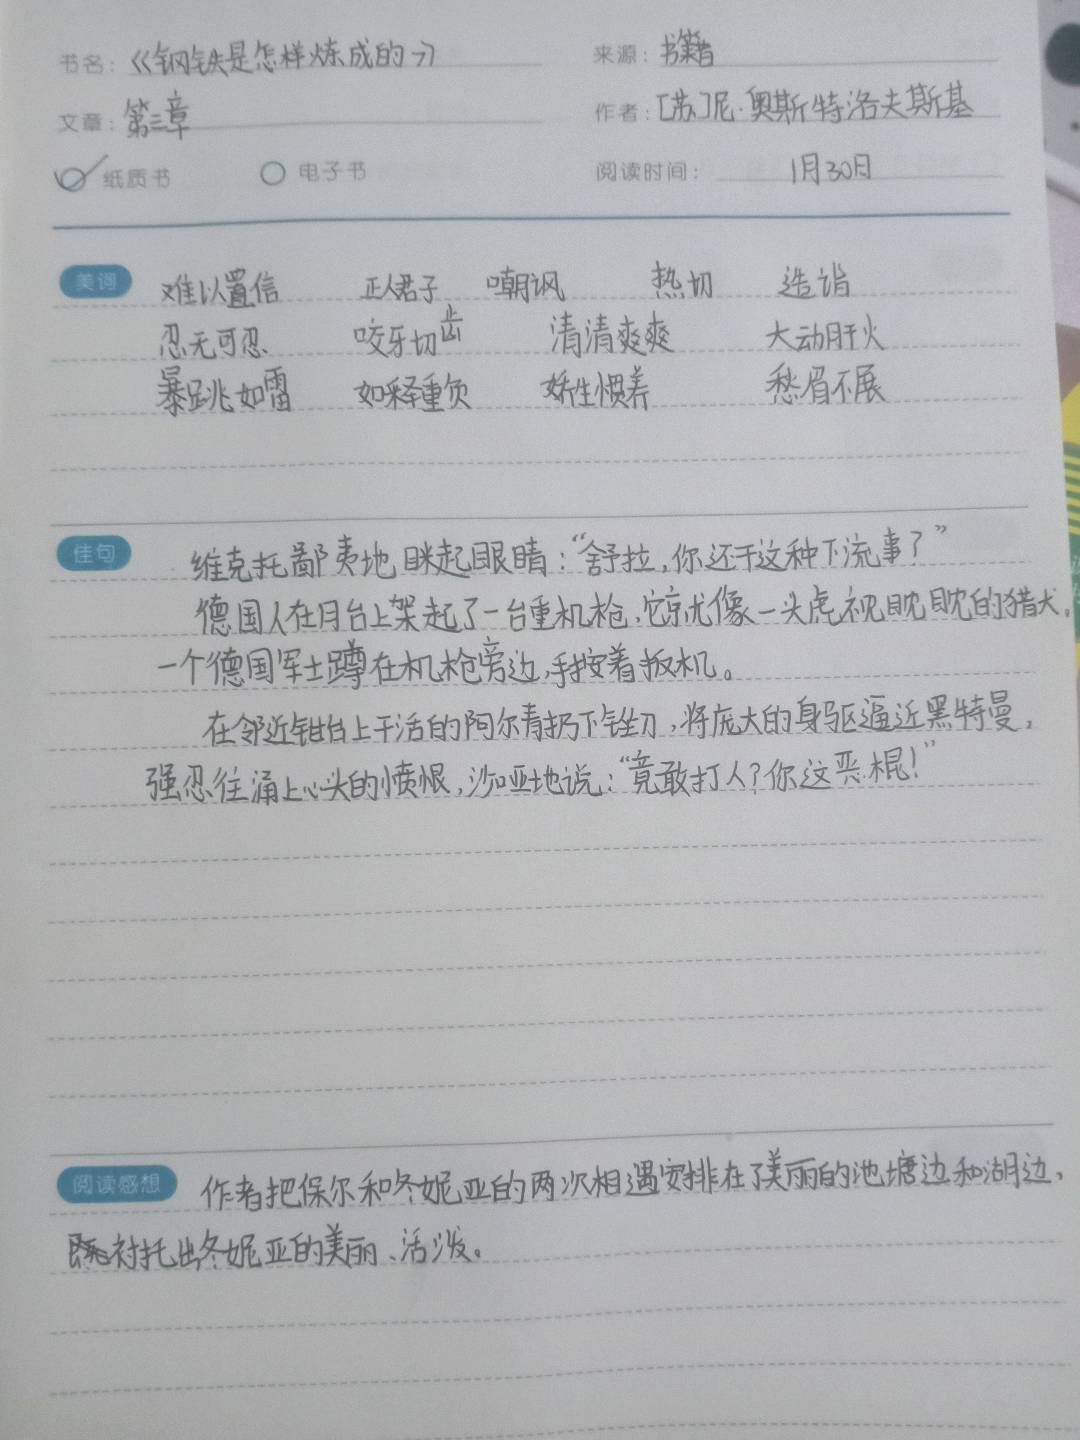 书名：《钢铁是怎样炼成的》 来源：书籍
文章：第三章 作者：[苏]尼·奥斯特洛夫斯基
纸质书 电子书 阅读时间： 1月30日
美词 难以置信 正人君子 嘲讽 热切 造诣
忍无可忍 咬牙切齿 清清爽爽 大动肝火
暴跳如雷 如释重负 娇生惯养 愁眉不展
佳句 维克托鄙夷地眯起眼睛：“舒拉，你还干这种下流事？”
德国人在月台上架起了一台重机枪，它就像一头虎视眈眈的猎犬，
一个德国军士蹲在机枪旁边，手按着扳机。
在邻近钳台上干活的阿尔青扔下锉刀，将庞大的身驱逼近黑特曼，
强忍往涌上心头的愤恨，沙哑地说：“竟敢打人？你这恶棍！”
阅读感想 作者把保尔和冬妮亚的两次相遇安排在了美丽的池塘边和湖边，
衬托出冬妮亚的美丽、活泼。